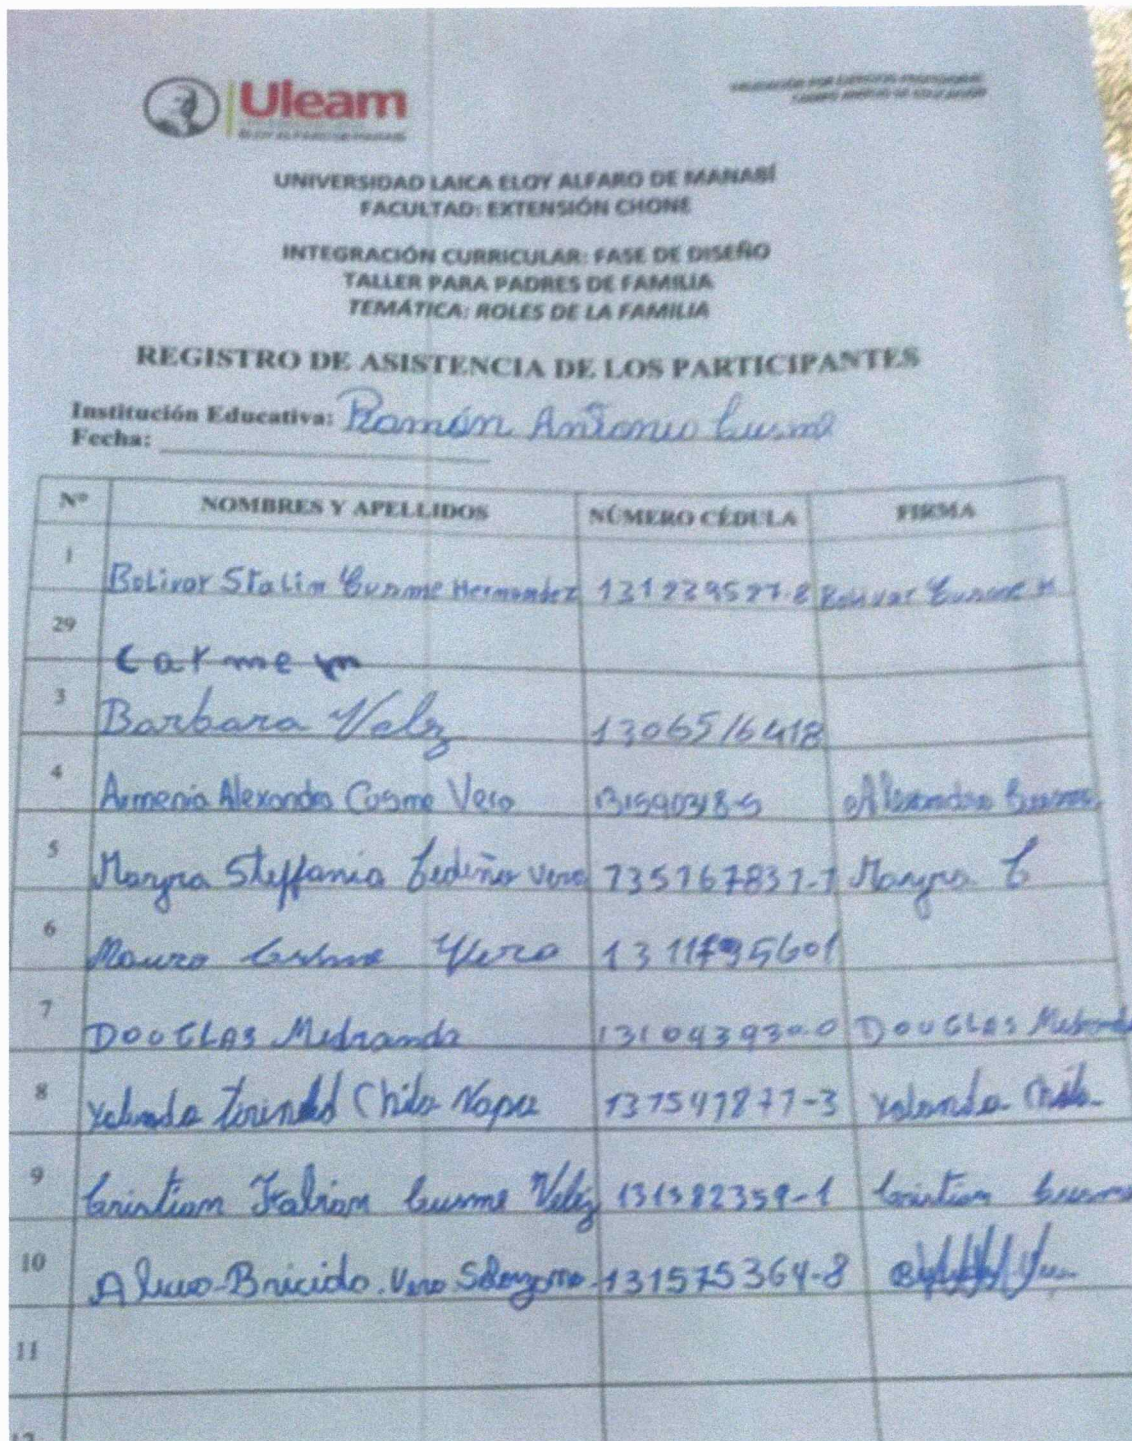 Uleam
UNIVERSIDAD LAICA ELOY ALFARO DE MANABÍ
FACULTAD: EXTENSIÓN CHONE
INTEGRACIÓN CURRICULAR: FASE DE DISEÑO
TALLER PARA PADRES DE FAMILIA
TEMÁTICA: ROLES DE LA FAMILIA
REGISTRO DE ASISTENCIA DE LOS PARTICIPANTES
Institución Educativa: Ramón Antonio Cusme
Fecha:
Nº NOMBRES Y APELLIDOS NÚMERO CÉDULA FIRMA
1 Bolivar Stalin Cusme Hernandez 131239527-8 Bolivar Cusme H
29 Carmen
3 Barbara Velz 1306516418
4 Armenia Alexandra Cusme Vera 131590318-5 Alexandra Cusme
5 Mayra Steffania Cedeño Vera 135167831-1 Mayra C
6 Mauro Cusme Vera
7 DOUGLAS Medranda 131043930-0 DOUGLAS
8 Yolanda Trinidad Chila Napa 131541877-3 Yolanda Chila
9 Cristian Fabian Cusme Veliz 131382359-1 Cristian Cusme
10 Bricido Vera Solorzano 131575364-8
11